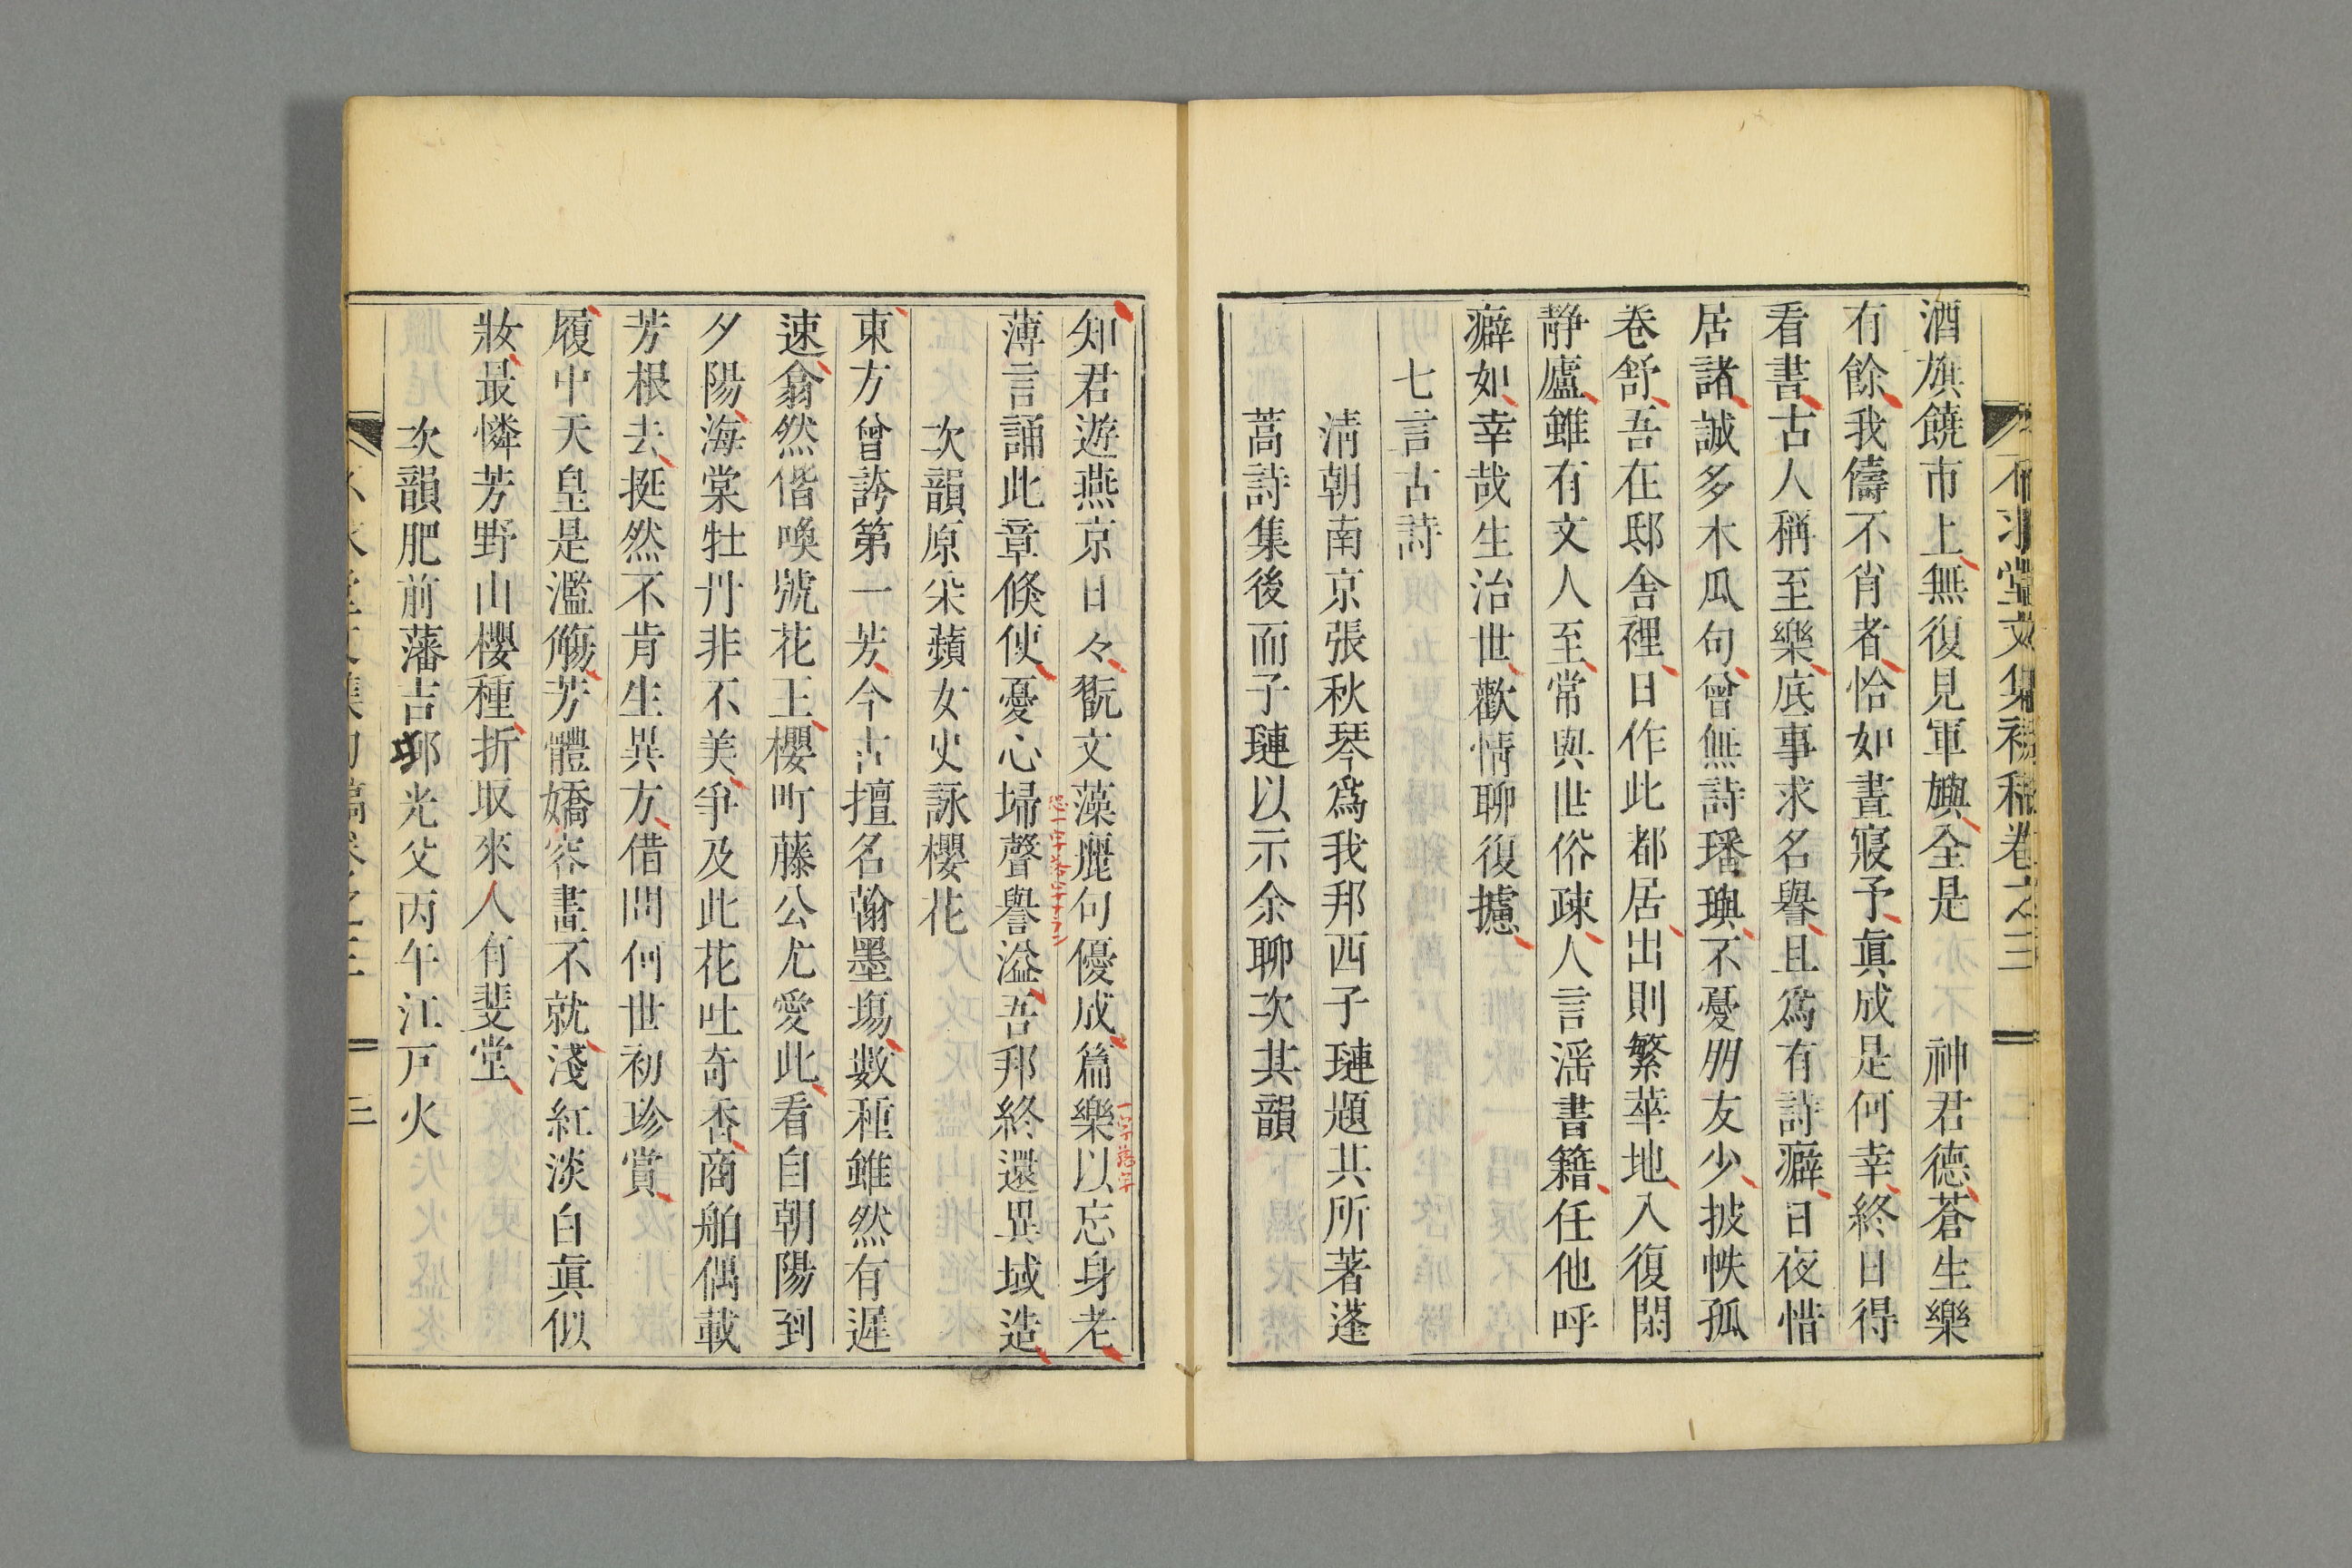 酒旗饒市上無復見軍旟全是　神君德蒼生樂
有餘我儔不肖者恰如晝寢予眞成是何幸終日得
看書古人稱至樂底事求名譽且爲有詩癖日夜惜
居諸誠多木瓜句曾無詩璠璵不憂朋友少披帙孤
卷舒吾在邸舎裡日作此都居出則繁華地入復閑
静廬雖有文人至常與世俗疎人言滛書籍任他呼
癖如幸哉生治世歡情聊復攄
七言古詩
清朝南京張秋琴爲我邦西子璉題其所著蓬
蒿詩集後而子璉以示余聊次其韻
知君遊燕京日々翫文藻麗句優成篇樂以忘身老
一字落字
薄言誦此章倏使憂心埽聲譽溢吾邦終還異域造
次韻原采蘋女史詠櫻花
東方曾誇第一芳今古擅名翰墨塲數種雖然有遲
速翕然偕喚號花王櫻町藤公尤愛此看自朝陽到
夕陽海棠牡丹非不美爭及此花吐奇香商舶偶載
芳根去挺然不肯生異方借問何世初珍賞
履中天皇是濫觴芳體嬌容畫不就淺紅淡白眞似
妝最憐芳野山櫻種折取來人有斐堂
次韻肥前藩吉邨光父丙午江戸火
三